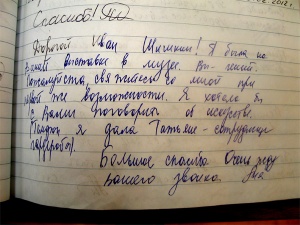 2012 г.
Спасибо!
Дорогой Иван Шишкин! Я была на
Вашей выставке в музее. Вы - гений.
Пожалуйста, свяжитесь со мной при
первой же возможности. Я хотела бы
с Вами поговорить об искусстве.
Телефон я дала Татьяне - сотруднице
гардероба.
Большое спасибо. Очень жду
вашего звонка.